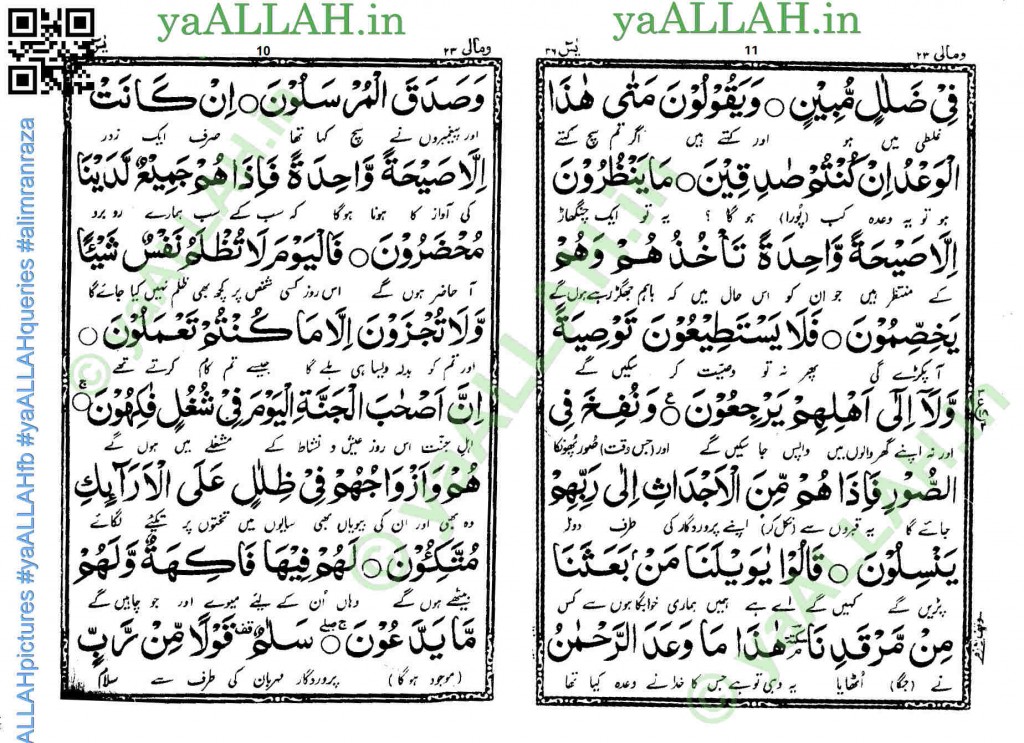 yaALLAH.in
yaALLAH.in
یٰسٓ ٣٦
11
ومالی ٢٣
فِیْ ضَلٰلٍ مُّبِیْنٍ ○ وَیَقُوْلُوْنَ مَتٰی هٰذَا
غلطی میں ہو اور کہتے ہیں اگر تم سچ کہتے
الْوَعْدُ اِنْ كُنْتُمْ صٰدِقِیْنَ ○ مَا یَنْظُرُوْنَ
ہو تو یہ وعدہ کب (پورا) ہو گا ؟ یہ تو ایک چنگھاڑ
اِلَّا صَیْحَةً وَّاحِدَةً تَاْخُذُهُمْ وَهُمْ
کے منتظر ہیں جو ان کو اس حال میں کہ باہم جھگڑ رہے ہوں گے
یَخِصِّمُوْنَ ○ فَلَا یَسْتَطِیْعُوْنَ تَوْصِیَةً
آ پکڑے گی پھر نہ تو وصیت کر سکیں گے
وَّلَاۤ اِلٰۤی اَهْلِهِمْ یَرْجِعُوْنَ ○ وَنُفِخَ فِی
اور نہ اپنے گھر والوں میں واپس جا سکیں گے اور (جس وقت) صور پھونکا
الصُّوْرِ فَاِذَا هُمْ مِّنَ الْاَجْدَاثِ اِلٰی رَبِّهِمْ
جائے گا یہ قبروں سے (نکل کر) اپنے پروردگار کی طرف دوڑ
یَنْسِلُوْنَ ○ قَالُوْا یٰوَیْلَنَا مَنْۢ بَعَثَنَا
پڑیں گے کہیں گے اے ہے ہمیں ہماری خوابگاہوں سے کس
مِنْ مَّرْقَدِنَا سکتہ هٰذَا مَا وَعَدَ الرَّحْمٰنُ
نے (جگا) اٹھایا یہ وہی تو ہے جس کا خدا نے وعدہ کیا تھا
یٰسٓ
10
ومالی ٢٣
وَصَدَقَ الْمُرْسَلُوْنَ ○ اِنْ كَانَتْ
اور پیغمبروں نے سچ کہا تھا صرف ایک زور
اِلَّا صَیْحَةً وَّاحِدَةً فَاِذَا هُمْ جَمِیْعٌ لَّدَیْنَا
کی آواز کا ہونا ہوگا کہ سب کے سب ہمارے رو برو
مُحْضَرُوْنَ ○ فَالْیَوْمَ لَا تُظْلَمُ نَفْسٌ شَیْـًٔا
آ حاضر ہوں گے اس روز کسی شخص پر کچھ بھی ظلم نہیں کیا جائے گا
وَّلَا تُجْزَوْنَ اِلَّا مَا كُنْتُمْ تَعْمَلُوْنَ ○
اور تم کو بدلہ ویسا ہی ملے گا جیسے تم کام کرتے تھے
اِنَّ اَصْحٰبَ الْجَنَّةِ الْیَوْمَ فِیْ شُغُلٍ فٰكِهُوْنَ ○
اہل جنت اس روز عیش و نشاط کے مشغلے میں ہوں گے
هُمْ وَاَزْوَاجُهُمْ فِیْ ظِلٰلٍ عَلَی الْاَرَآىِٕكِ
وہ بھی اور ان کی بیویاں بھی سایوں میں تختوں پر تکیے لگائے
مُتَّكِـُٔوْنَ ○ لَهُمْ فِیْهَا فَاكِهَةٌ وَّلَهُمْ
بیٹھے ہوں گے وہاں ان کے لیئے میوے اور جو چاہیں گے
مَّا یَدَّعُوْنَ ○ سَلٰمٌ قف قَوْلًا مِّنْ رَّبٍّ
(موجود ہو گا) پروردگار مہربان کی طرف سے سلام
ALLAHpictures #yaALLAHfb #yaALLAHqueries #alimranraza
© yaALLAH.in
© yaALLAH.in
© yaALLAH.in